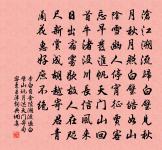 滄江溯流歸白璧見秋
月秋月照白璧皓如山
陰雪幽人停宵征賈客
忘早發進帆天門山回
首牛渚沒川長信風來
日出宿霧歇故人在咫
尺新賞成胡越寄君青
蘭花惠好庶不絕
李白自金陵溯流過白
璧山玩月達天門寄句
容王主簿